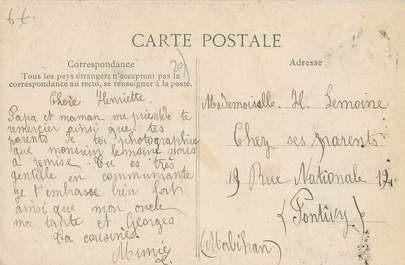 6€
CARTE POSTALE
Correspondance
Tous les pays étrangers n'acceptent pas la
correspondance au recto, se renseigner à la poste.
Adresse
Chère Henriette
Papa et maman me prient de te
remercier ainsi que tes
parents de ta photographie
que monsieur Lemoine nous
a remise. Tu es très
gentille en communiante
je t'embrasse bien fort
ainsi que mon oncle
ma tante et Georges
Ta cousine
Mimie
Mademoiselle H. Lemoine
Chez ses parents
19 Rue Nationale 19
Pontivy
(Morbihan)